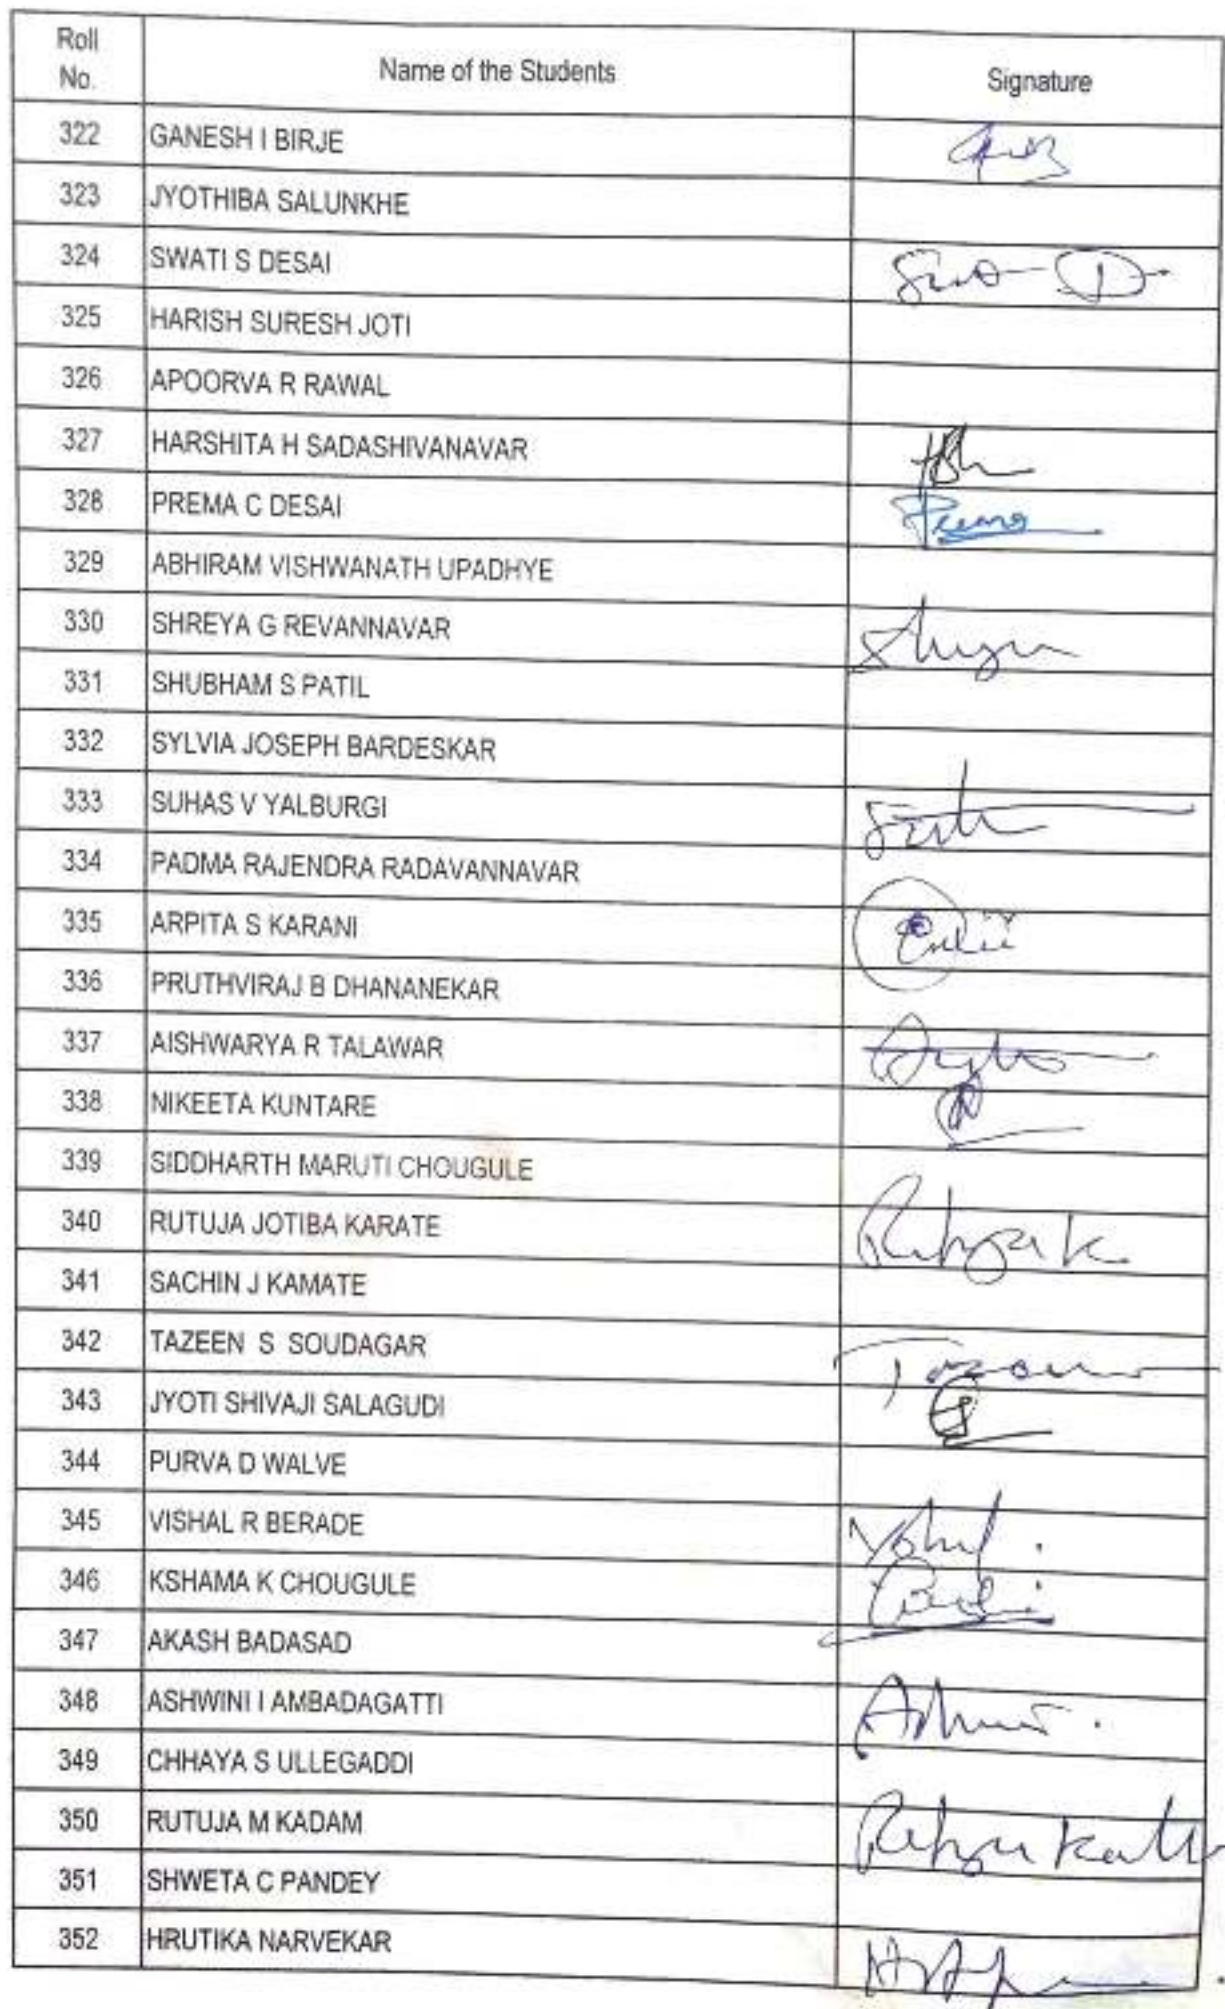 Roll No. Name of the Students Signature
322 GANESH I BIRJE
323 JYOTHIBA SALUNKHE
324 SWATI S DESAI
325 HARISH SURESH JOTI
326 APOORVA R RAWAL
327 HARSHITA H SADASHIVANAVAR
328 PREMA C DESAI Prema
329 ABHIRAM VISHWANATH UPADHYE
330 SHREYA G REVANNAVAR
331 SHUBHAM S PATIL
332 SYLVIA JOSEPH BARDESKAR
333 SUHAS V YALBURGI
334 PADMA RAJENDRA RADAVANNAVAR
335 ARPITA S KARANI
336 PRUTHVIRAJ B DHANANEKAR
337 AISHWARYA R TALAWAR
338 NIKEETA KUNTARE
339 SIDDHARTH MARUTI CHOUGULE
340 RUTUJA JOTIBA KARATE
341 SACHIN J KAMATE
342 TAZEEN S SOUDAGAR
343 JYOTI SHIVAJI SALAGUDI
344 PURVA D WALVE
345 VISHAL R BERADE
346 KSHAMA K CHOUGULE
347 AKASH BADASAD
348 ASHWINI I AMBADAGATTI
349 CHHAYA S ULLEGADDI
350 RUTUJA M KADAM
351 SHWETA C PANDEY
352 HRUTIKA NARVEKAR